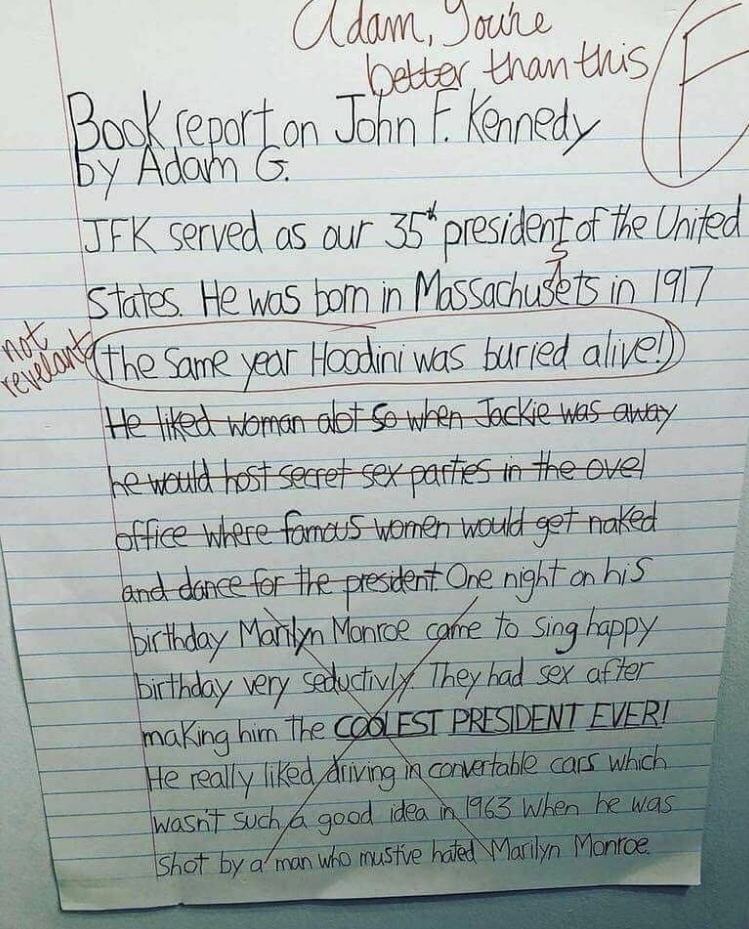 Adam, You're
better than this
F
Book report on John F. Kennedy
by Adam G.
JFK served as our 35th president of the United
States. He was born in Massachusets in 1917
s
not
revelant
(the same year Hoodini was buried alive!)
He liked woman alot so when Jackie was away
he would host secret sex parties in the ovel
office where famous women would get naked
and dance for the president. One night on his
birthday Marilyn Monroe came to sing happy
birthday very seductivly. They had sex after
making him the COOLEST PRESIDENT EVER!
He really liked driving in convertable cars which
wasn't such a good idea in 1963 when he was
shot by a man who mustive hated Marilyn Monroe.